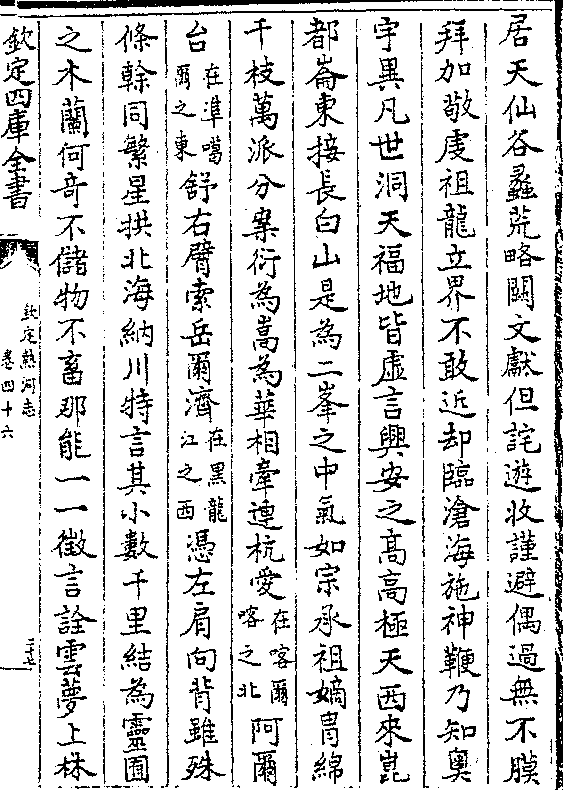 居天仙谷蠡荒略闕文獻但詫遊牧謹避偶過無不膜
拜加敬虔祖龍立界不敢近却臨滄海施神鞭乃知奧
宇異凡世洞天福地皆虛言興安之高高極天西來崑
都崙東接長白山是為二峯之中氣如宗承祖嫡冑綿
千枝萬派分案衍為嵩為華相牽連杭愛在喀爾喀之北阿爾
台在準噶爾之東舒右臂索岳爾濟在黑龍江之西憑左肩向背雖殊
條榦同繁星拱北海納川特言其小數千里結為靈囿
之木蘭何奇不儲物不畜那能一一徵言詮雲夢上林
欽定四庫全書
欽定熱河志
卷四十六